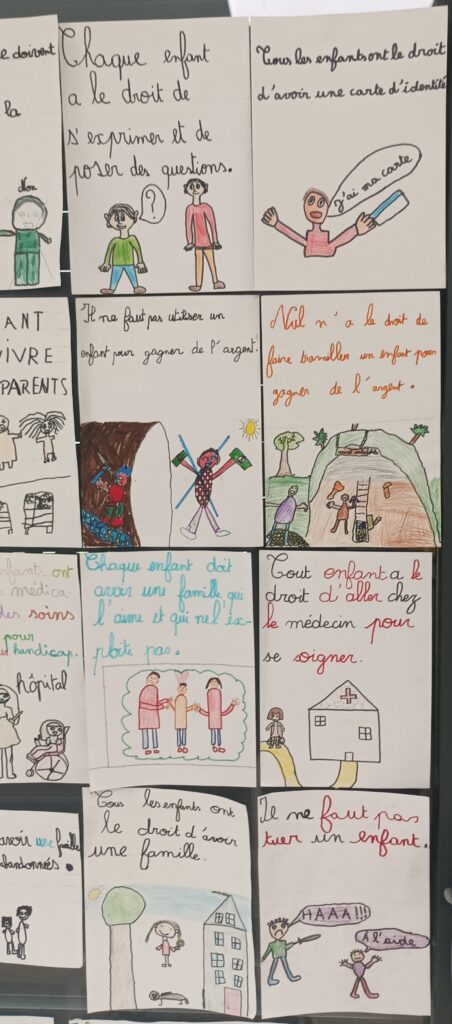 e doivent
la
Non
Chaque enfant
a le droit de
s'exprimer et de
poser des questions.
?
Tous les enfants ont le droit
d'avoir une carte d'identité
J'ai ma carte
ANT
VIVRE
PARENTS
Il ne faut pas utiliser un
enfant pour gagner de l'argent!
Nul n'a le droit de
faire travailler un enfant pour
gagner de l'argent.
nfants ont
médica
des soins
pour
handicap.
hôpital
Chaque enfant doit
avoir une famille qui
l'aime et qui ne l'ex-
ploite pas.
Tout enfant a le
droit d'aller chez
le médecin pour
se soigner.
avoir une famille
abandonnés.
Tous les enfants ont
le droit d'avoir
une famille.
Il ne faut pas
tuer un enfant.
HAAA!!!
A l'aide